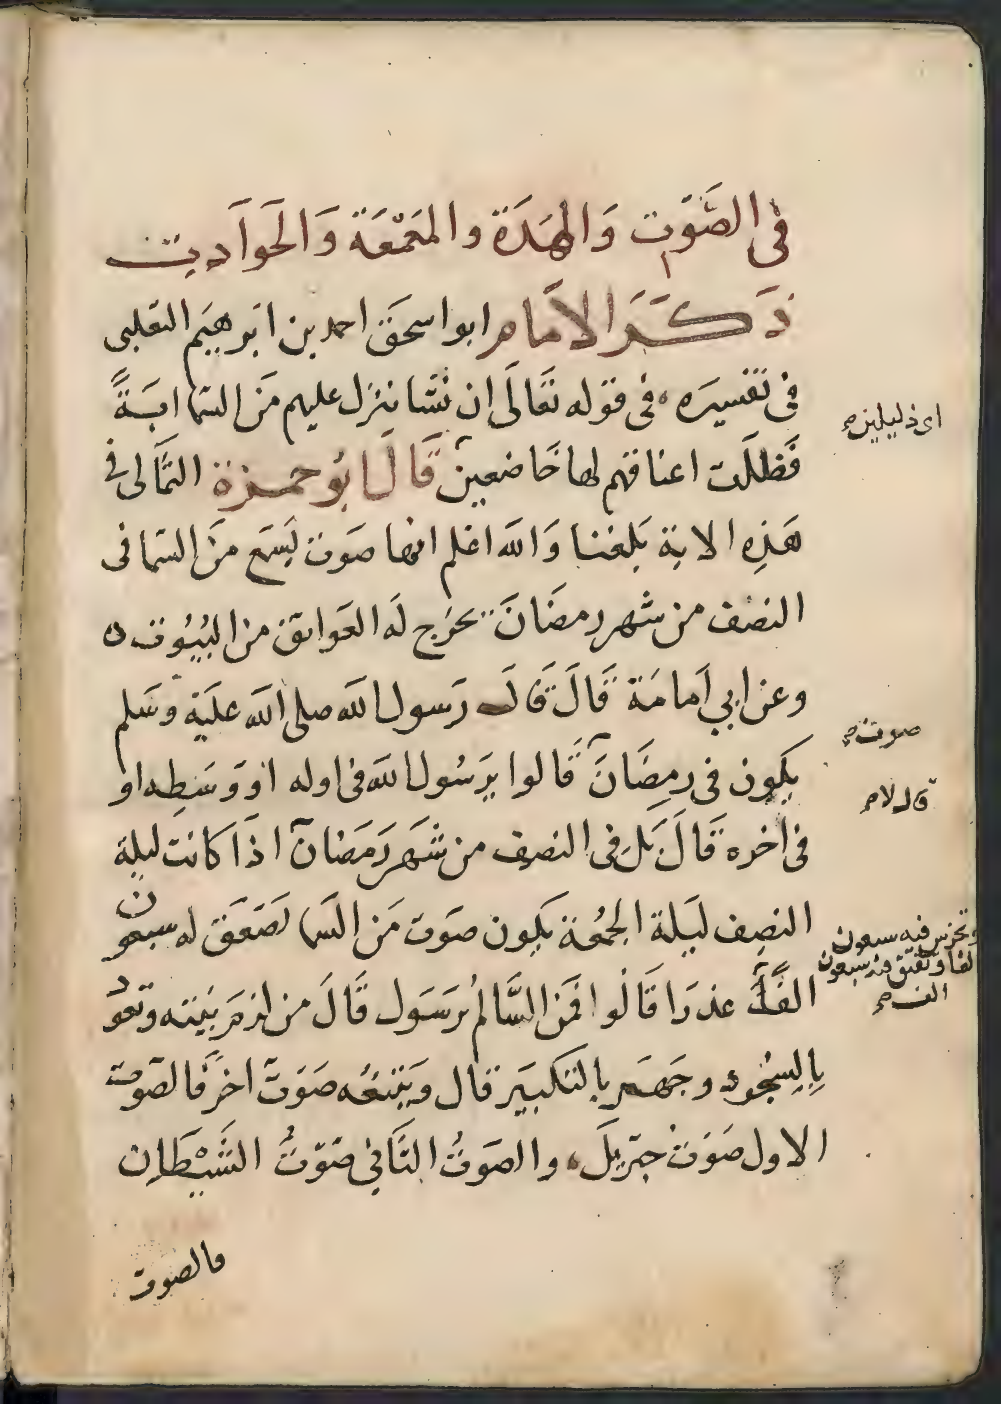 في الصَّوت وَالهَدَة والمَعمَعَة وَالحَوَادِيث
ذكَرَ الامَام ابو اسحَق احمد بن ابرهيَم الثعلبى
فى تفسيَره فى قوله تعَالَى ان نشَا ننزل عليهم مَن السَّما ايَةً
فَظلَت اعناقهم لها خَاضعين قَالَ ابُو حمزة الثمَّالى فى
هَذِه الاية بَلغنا وَالله اعلم انها صَوت يَسَمع مَن السَّما فى
النصْف من شهر رمضَانَ يخرَج لَه العَواتق من البُيُوت ه
وعن ابي اَمامَة قَالَ قَالَ رَسول الله صلى الله علَيَه وسَلم
يَكون في رمِضَانَ قالوا يرَسُول الله فى اوله او وَسَطِه او
فى اخره قَالَ بَل فى النصف من شَهَر رَمضَان اذَا كانت ليلة
النصِف ليَلة الجمُعَة يَكون صَوت مَن السَما يَصَعَق له سبعون
الفًا عذرَا قَالُوا فمَن السَّالم يرَسَول قَالَ من لزمَ بَيَته وتعوذ
بِالِسُجُود وجَهَر بالتكبيَر قال ويَتبعُه صَوَت اخَر فالصَوت
الاول صَوَت جبَريلَ والصَوتُ الثَاني صَوتُ الشَيْطَان
فالصوت
اى ذليلين صح
صوت صح
قال لا صح
وتخرس فيه سبعون
الفا وتفتق فيه سبعون
الف صح